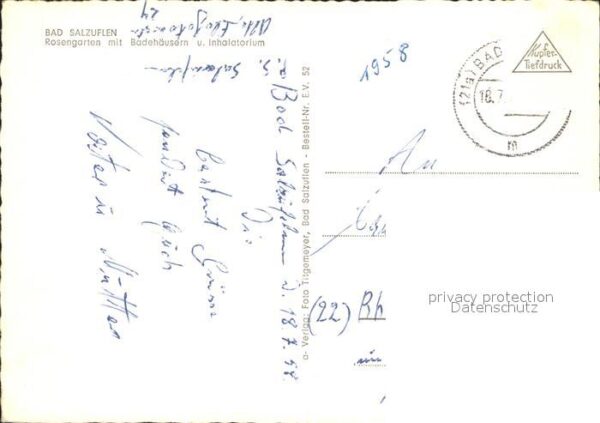 BAD SALZUFLEN
Rosengarten mit Badehäusern u. Inhalatorium
24
z. Z. Bad Salzuflen d. 18.7.58
Die
besten Grüsse
sendet Euch
Vater u Mutter
a- Verlag: Foto Tilgemeyer, Bad Salzuflen - Bestell-Nr. E.V. 52
1958
Kupfer-
Tiefdruck
(21a) BAD
18.7
m
An
(22) Rh
privacy protection
Datenschutz